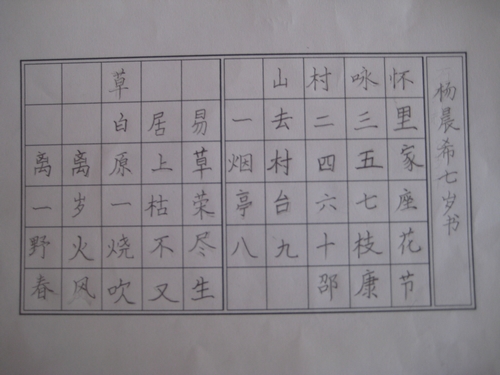 草
白居易
离离原上草
一岁一枯荣
野火烧不尽
春风吹又生
山村咏怀
一去二三里
烟村四五家
亭台六七座
八九十枝花
邵康节
杨晨希七岁书